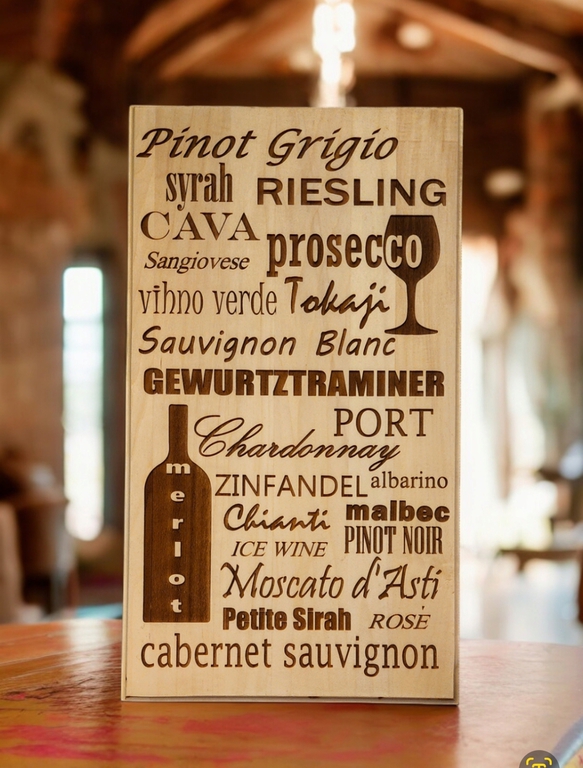 Pinot Grigio
syrah RIESLING
CAVA prosecco
Sangiovese
vihno verde Tokaji
Sauvignon Blanc
GEWURTZTRAMINER
PORT
Chardonnay
merlot
ZINFANDEL albarino
Chianti malbec
ICE WINE PINOT NOIR
Moscato d'Asti
Petite Sirah ROSÉ
cabernet sauvignon